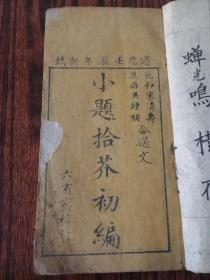 道光壬辰年新鐫
元和宋清壽
吳縣吳鍾駿
合選文
小題拾芥初編
六有
蟬
鳴